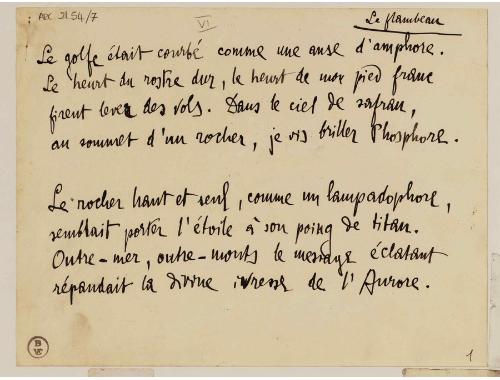 AEC JL 54/7
VI
Le flambeau
Le golfe était courbé comme une anse d'amphore.
Le heurt du rostre dur, le heurt de mon pied franc
firent lever des vols. Dans le ciel de safran,
au sommet d'un rocher, je vis briller Phosphore.
Le rocher haut et seul, comme un lampadophore,
semblait porter l'étoile à son poing de titan.
Outre-mer, outre-monts le message éclatant
répandait la divine ivresse de l'Aurore.
1